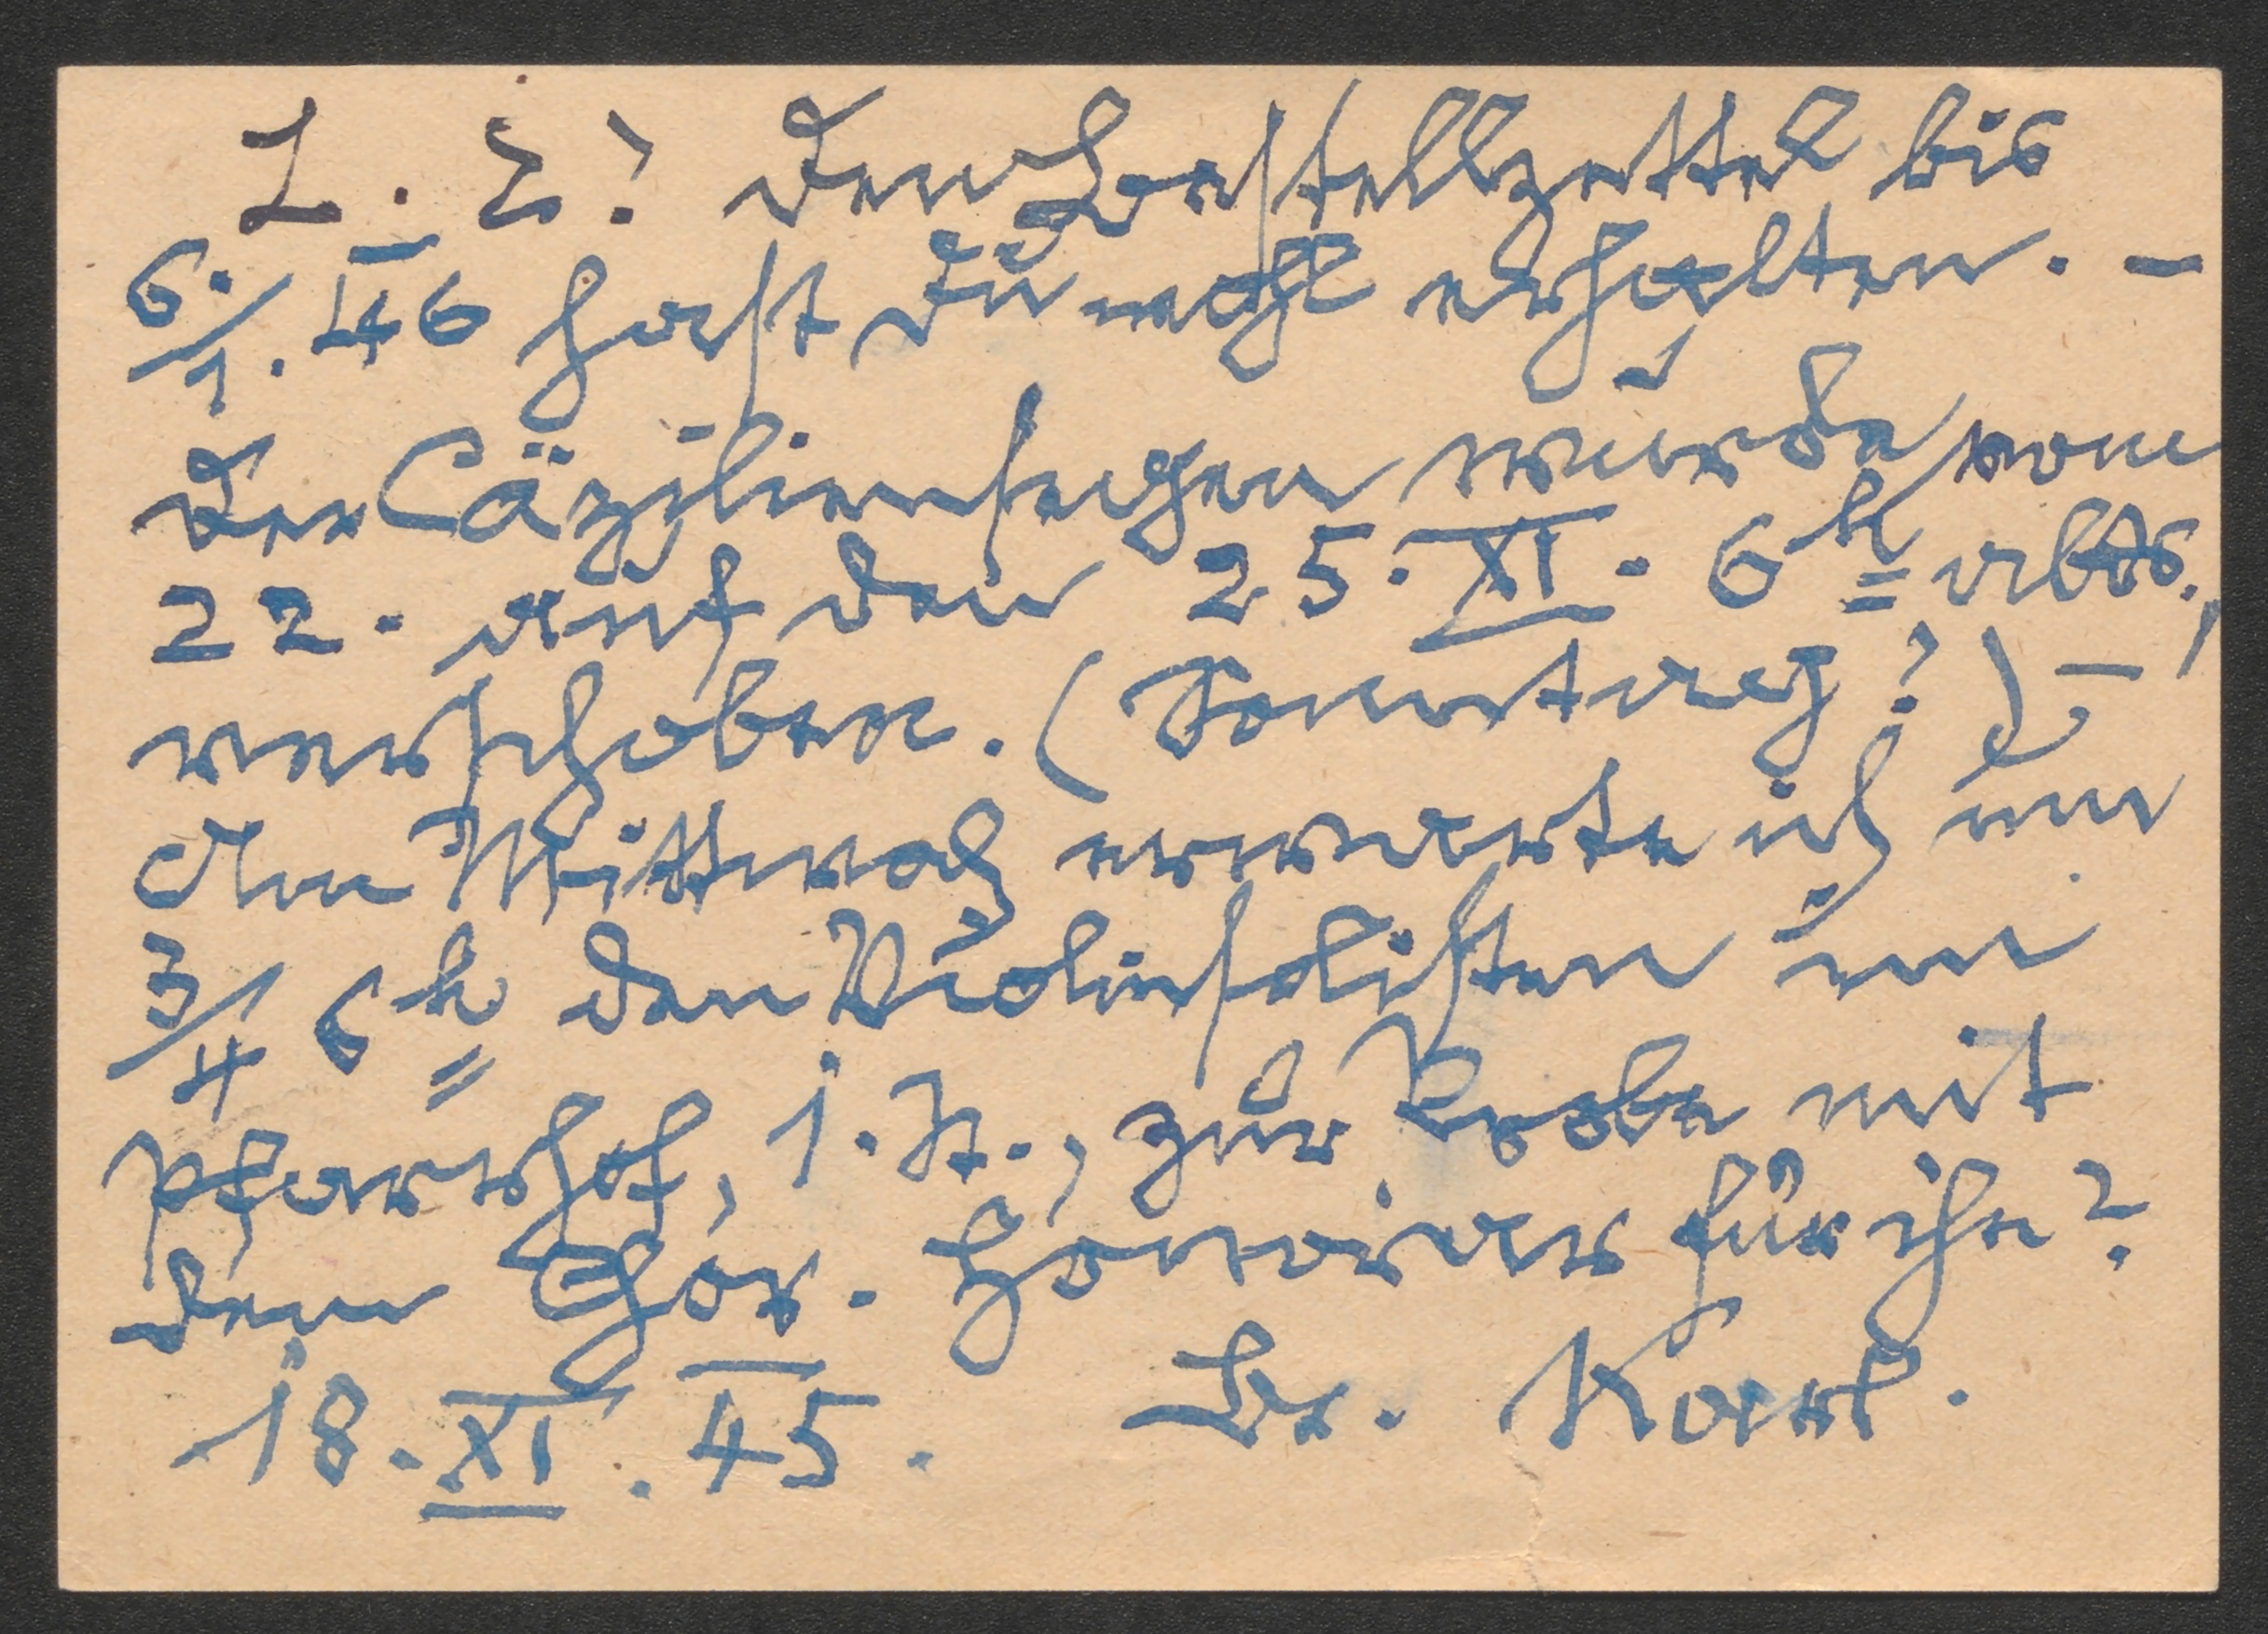 L. E! Den Bestellzettel bis
6./1. 46 hast Du wohl erhalten. –
Der Cäziliensegen wurde vom
22. auf den 25. XI. 6h abds.,
verschoben. (Sonntag!) –
Am Mittwoch erwarte ich um
3/4 6h den Violinsolisten im
Pfarrhof, 1. St., zur Probe mit
dem Chor. Honorar für ihn?
18. XI. 45. Br. Karl.